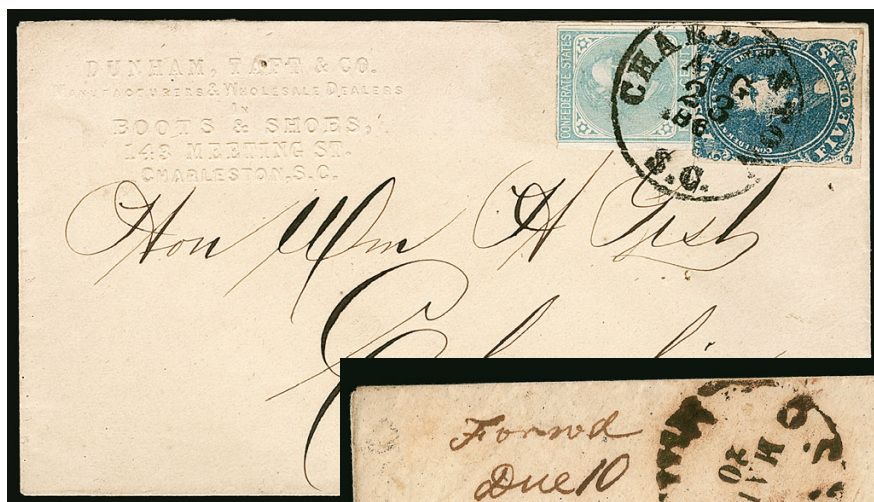 DUNHAM, TAFT & CO.
MANUFACTURERS & WHOLESALE DEALERS
IN
BOOTS & SHOES,
143 MEETING ST.
CHARLESTON, S.C.
CONFEDERATE STATES
FIVE CENTS
CHARLESTON
AUG
S.C.
Hon Wm H Gist
Forwd
Due 10
MAY
20